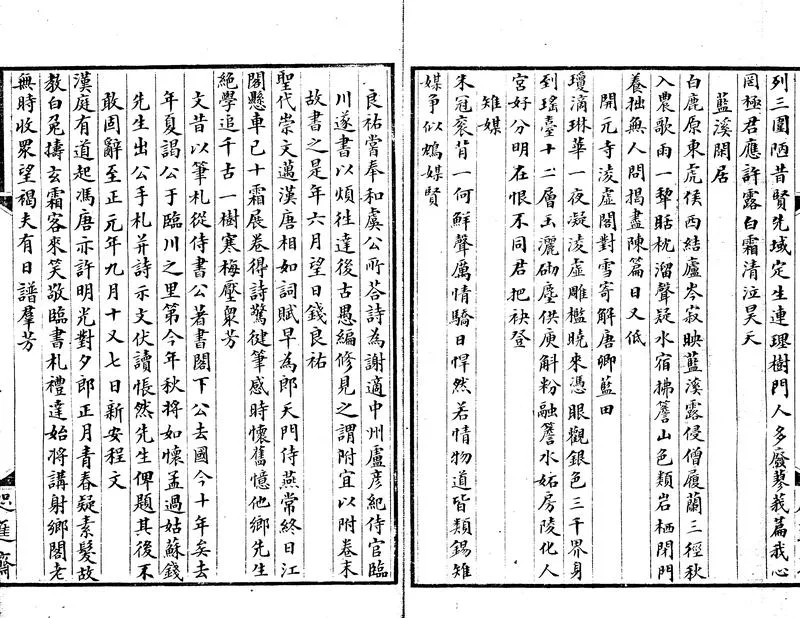 列三圍陋昔賢先域定生連理樹門人多廢蓼莪篇我心
罔極君應許露白霜清泣昊天
藍溪閑居
白鹿原東虎俟西結廬岑寂映藍溪露侵僧履蘭三徑秋
入農歌雨一犂貼枕溜聲疑水宿拂簷山色類岩栖閑門
養拙無人問揭盡陳篇日又低
開元寺淩虛閣對雪寄解唐卿藍田
瓊滴琳華一夜凝淩虛雕檻曉來憑眼觀銀色三千界身
到瑤臺十二層玉灑砌塵供庾斛粉融簷水妬房陵化人
宮好分明在恨不同君把袂登
雉媒
朱冠衮背一何鮮聲厲情驕日悍然若情物道皆類錫雉
媒爭似鴆媒賢
良祐嘗奉和虞公所荅詩為謝適中州盧彥紀侍官臨
川遂書以煩徃達後古愚編修見之謂附宜以附卷末
故書之是年六月望日錢良祐
聖代崇文邁漢唐相如詞賦早為郎天門侍燕常終日江
閣懸車已十霜展卷得詩驚健筆感時懷舊憶他鄉先生
絕學追千古一樹寒梅壓衆芳
文昔以筆札從侍書公著書閣下公去國今十年矣去
年夏謁公于臨川之里第今年秋將如懷孟過姑蘇錢
先生出公手札并詩示文伏讀悵然先生俾題其後不
敢固辭至正元年九月十又七日新安程文
漢庭有道起馮唐亦許明光對夕郎正月青春疑素髮故
教白兔擣玄霜客來笑敬臨書札禮達始將講射鄉閣老
無時收眾望褐夫有日譜羣芳